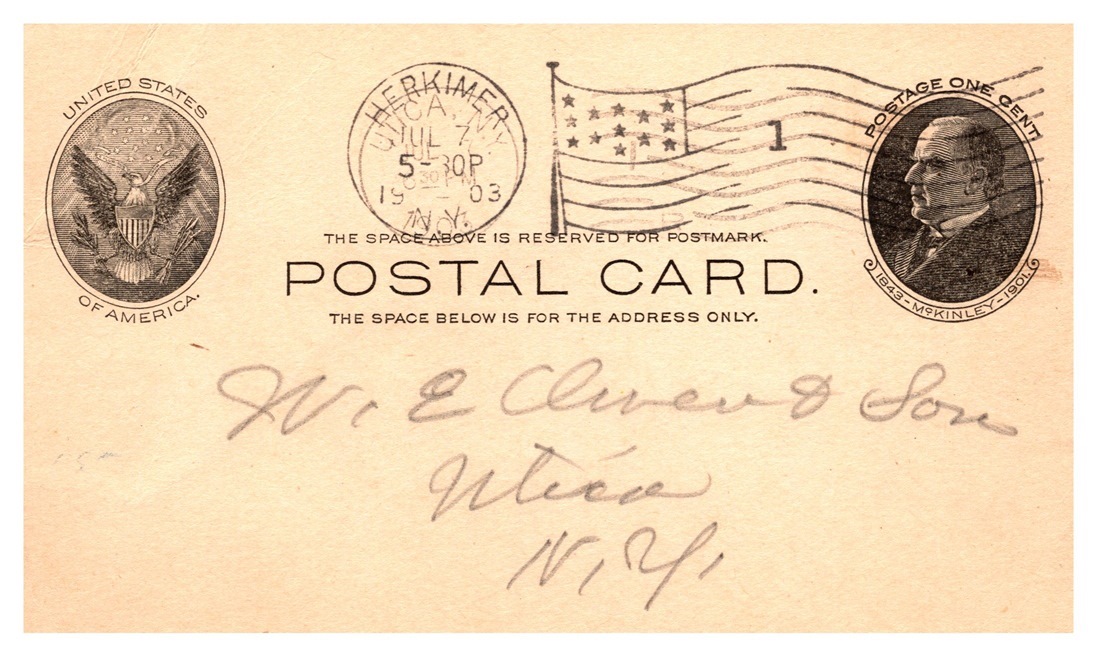 UNITED STATES
OF AMERICA.
HERKIMER
UTICA, N.Y.
JUL 7
5-30P
630 PM
1903
N.Y.
1
POSTAGE ONE CENT.
1843-McKINLEY-1901.
THE SPACE ABOVE IS RESERVED FOR POSTMARK.
POSTAL CARD.
THE SPACE BELOW IS FOR THE ADDRESS ONLY.
W. E & Son
Utica
N.Y.